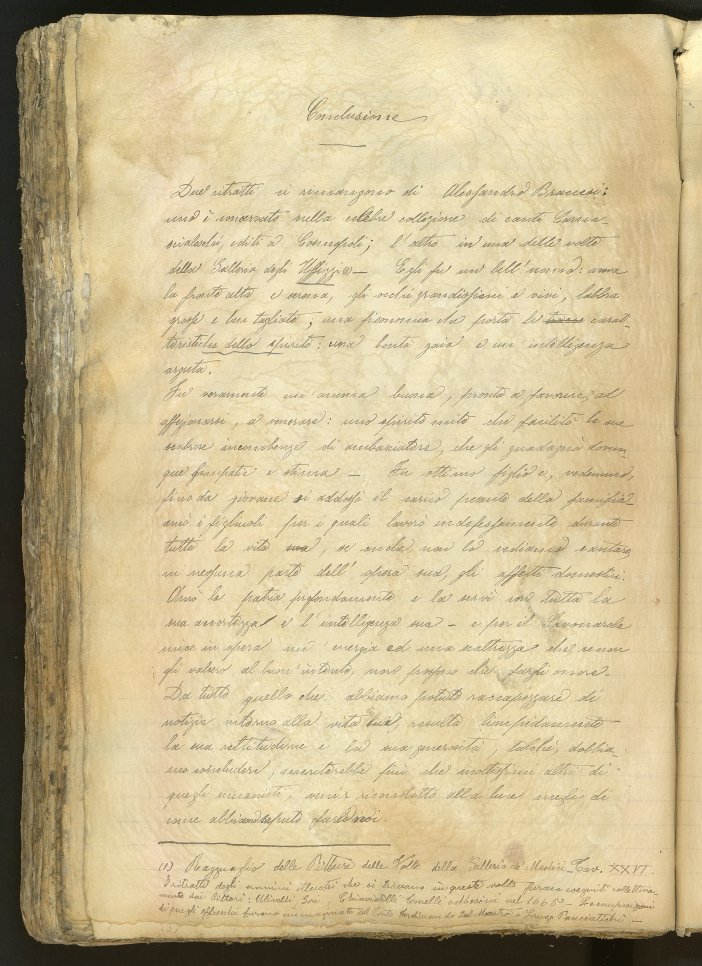 Conclusione
Due ritratti ci rimangono di Alessandro Braccesi:
uno è conservato nella celebre collezione di canti Carna-
scialeschi, editi a Cosmopoli; l'altro in una delle volte
della Galleria degli Uffizzi (1) — Egli fu un bell'uomo: aveva
la fronte alta e serena, gli occhi grandissimi e vivi, labbra
grosse e ben tagliate; una fisonomia che porta le carat-
teristiche dello spirito: una bontà gaia e un'intelligenza
arguta.
Fu veramente un'anima buona, pronta a favorire, ad
affezionarsi, a venerare: uno spirito mite che facilitò le sue
scabrose incombenze di ambasciatore, che gli guadagnò dovun-
que simpatie e stima — Fu ottimo figlio e, vedemmo,
fino da giovane si addossò il carico pesante della famiglia-
amò i figliuoli per i quali lavorò indefessamente durante
tutta la vita sua, se anche non lo vediamo cantare
in nessuna parte dell'opera sua, gli affetti domestici.
Amò la patria profondamente e la servì con tutta la
sua accortezza e l'intelligenza sua — e per il Savonarola
mise in opera un'energia ed una scaltrezza che se non
gli valsero al buon'intento, non possono che fargli onore—
Da tutto quello che abbiamo potuto raccapezzare di
notizie intorno alla vita sua, resulta limpidamente
la sua rettitudine e la sua generosità, talchè, dobbia-
mo concludere, meriterebbe più che moltissimi altri di
quegli umanisti, venir ricondotto alla luce meglio di
come abbiamo saputo far noi.
(1) Ragguaglio delle Pitture delle Volte della Galleria de' Medici Tav. XXVI.
I ritratti degli uomini illustri che si trovano in queste volte furono eseguiti collettiva-
mente dai Pittori; Ulivelli, Chiavistelli Tonelli e Masini nel 1665 —
di quegli affreschi furono immaginate dal Conte Ferdinando Del Maestro e Lorenzo Panciatichi —